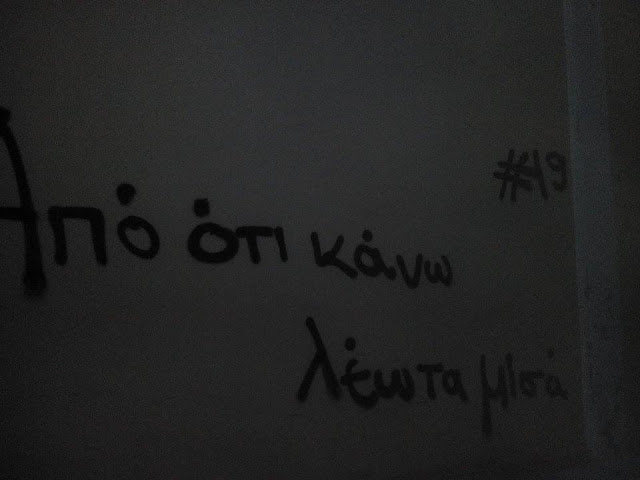 #19
Από ότι κάνω
λέω τα μισά